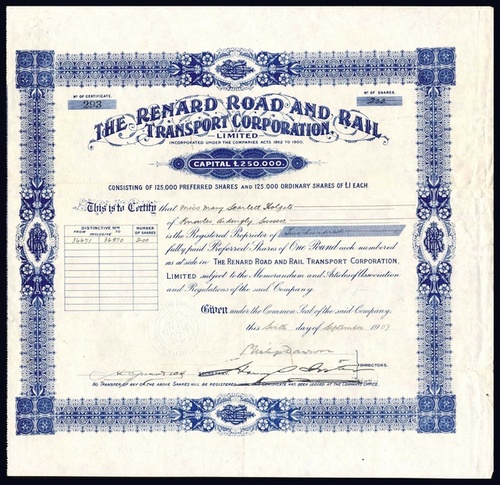 No OF CERTIFICATE.
293
No OF SHARES.
200
THE RENARD ROAD AND RAIL
TRANSPORT CORPORATION,
LIMITED
INCORPORATED UNDER THE COMPANIES ACTS 1862 TO 1900.
CAPITAL £250,000.
CONSISTING OF 125,000 PREFERRED SHARES AND 125,000 ORDINARY SHARES OF £1 EACH
This is to Certify that Miss Mary Scarlett Holgate
of Knowles Ardingly Sussex
is the Registered Proprietor of Two hundred
fully paid Preferred Shares of One Pound each numbered
as at side in THE RENARD ROAD AND RAIL TRANSPORT CORPORATION,
LIMITED subject to the Memorandum and Articles of Association
and Regulations of the said Company.
DISTINCTIVE Nos INCLUSIVE
NUMBER OF SHARES
36671 TO 36870 200
Given under the Common Seal of the said Company.
this Sixth day of September 1907
Philip Dawson
DIRECTORS.
SECRETARY.
NO TRANSFER OF ANY OF THE ABOVE SHARES WILL BE REGISTERED CERTIFICATE HAS BEEN LODGED AT THE COMPANY'S OFFICE.